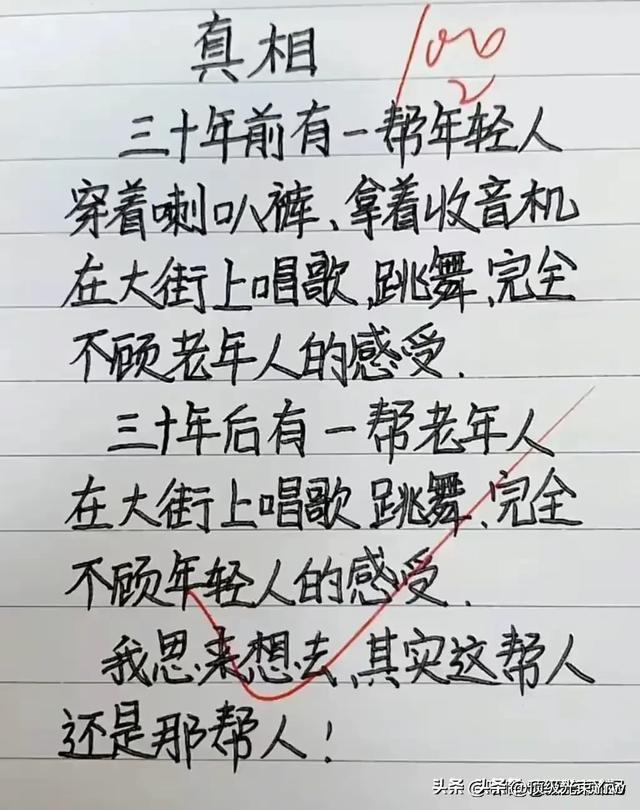 真相
100
三十年前有一帮年轻人
穿着喇叭裤、拿着收音机
在大街上唱歌、跳舞、完全
不顾老年人的感受.
三十年后有一帮老年人
在大街上唱歌 跳舞、完全
不顾年轻人的感受.
我思来想去、其实这帮人
还是那帮人!
头条